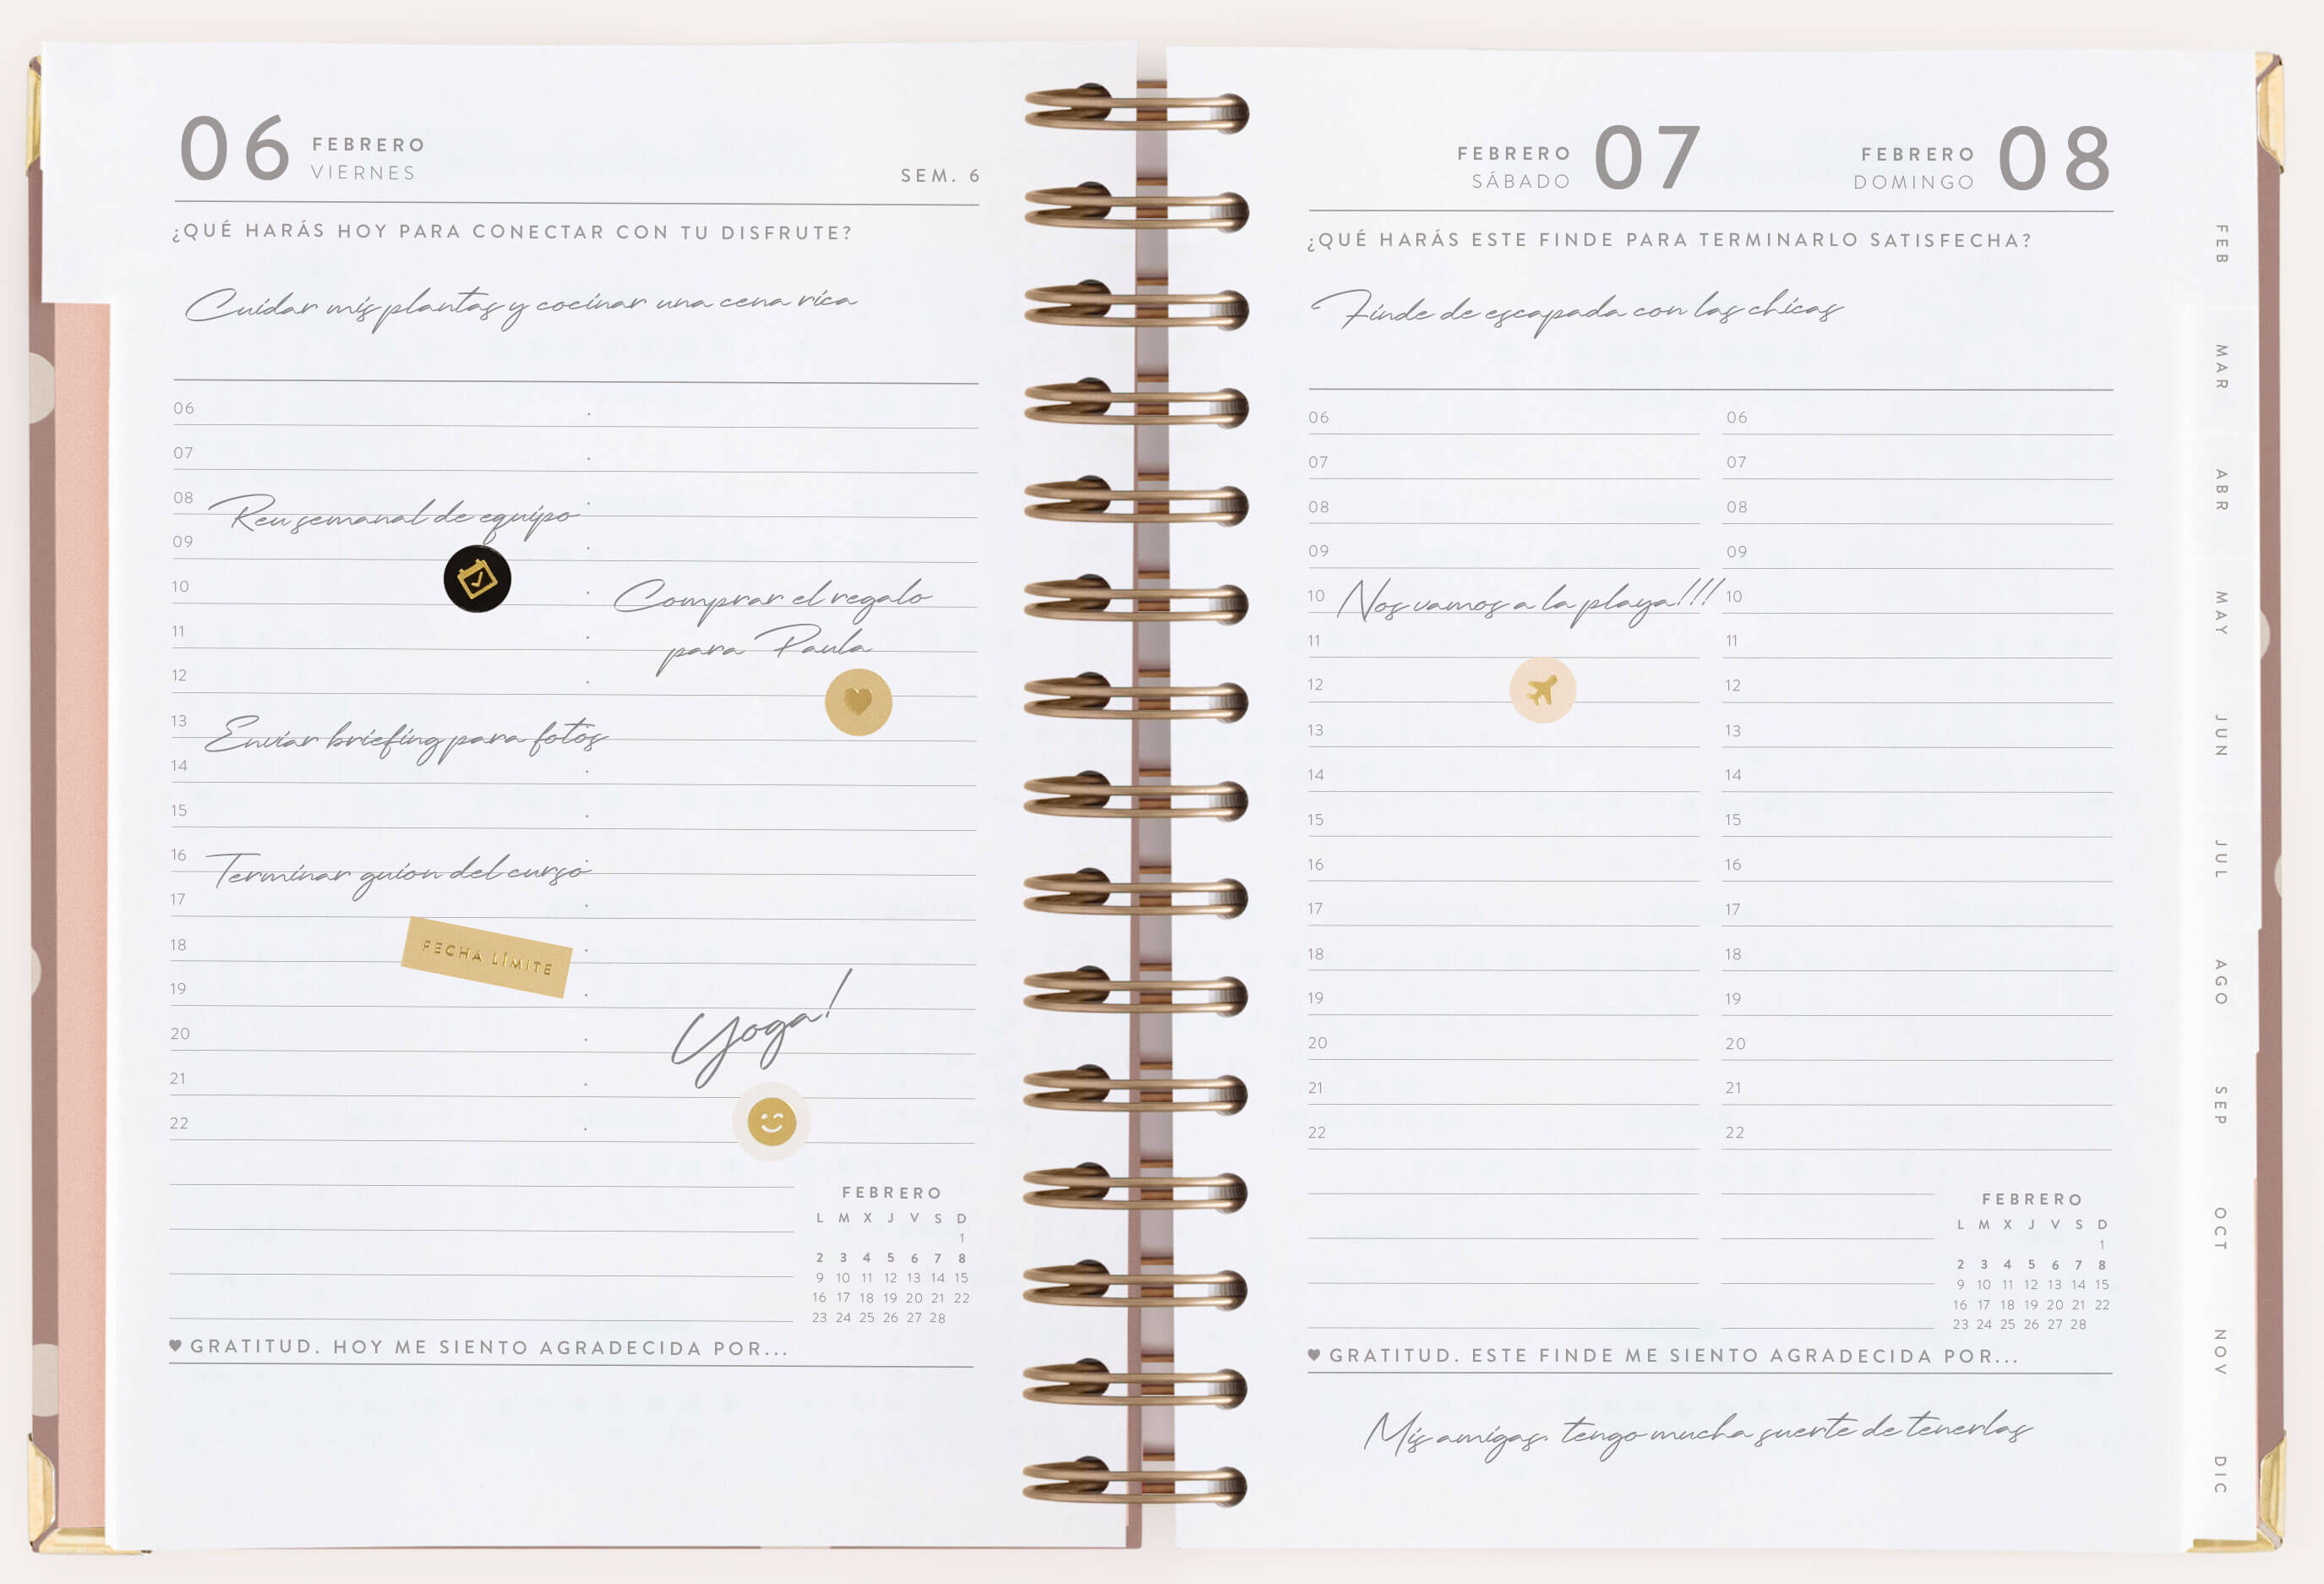 06 FEBRERO
VIERNES
SEM. 6
¿QUÉ HARÁS HOY PARA CONECTAR CON TU DISFRUTE?
Cuidar mis plantas y cocinar una cena rica
06
07
08 Reu semanal de equipo
09
10 Comprar el regalo
11 para Paula
12
13 Enviar briefing para fotos
14
15
16 Terminar guion del curso
17
18 FECHA LÍMITE
19
20 Yoga!
21
22
FEBRERO
L M X J V S D
1
2 3 4 5 6 7 8
9 10 11 12 13 14 15
16 17 18 19 20 21 22
23 24 25 26 27 28
GRATITUD. HOY ME SIENTO AGRADECIDA POR...
FEBRERO 07
SÁBADO
FEBRERO 08
DOMINGO
¿QUÉ HARÁS ESTE FINDE PARA TERMINARLO SATISFECHA?
Finde de escapada con las chicas
06 06
07 07
08 08
09 09
10 Nos vamos a la playa!!! 10
11 11
12 12
13 13
14 14
15 15
16 16
17 17
18 18
19 19
20 20
21 21
22 22
FEBRERO
L M X J V S D
1
2 3 4 5 6 7 8
9 10 11 12 13 14 15
16 17 18 19 20 21 22
23 24 25 26 27 28
GRATITUD. ESTE FINDE ME SIENTO AGRADECIDA POR...
Mis amigas. tengo mucha suerte de tenerlas
FEB
MAR
ABR
MAY
JUN
JUL
AGO
SEP
OCT
NOV
DIC